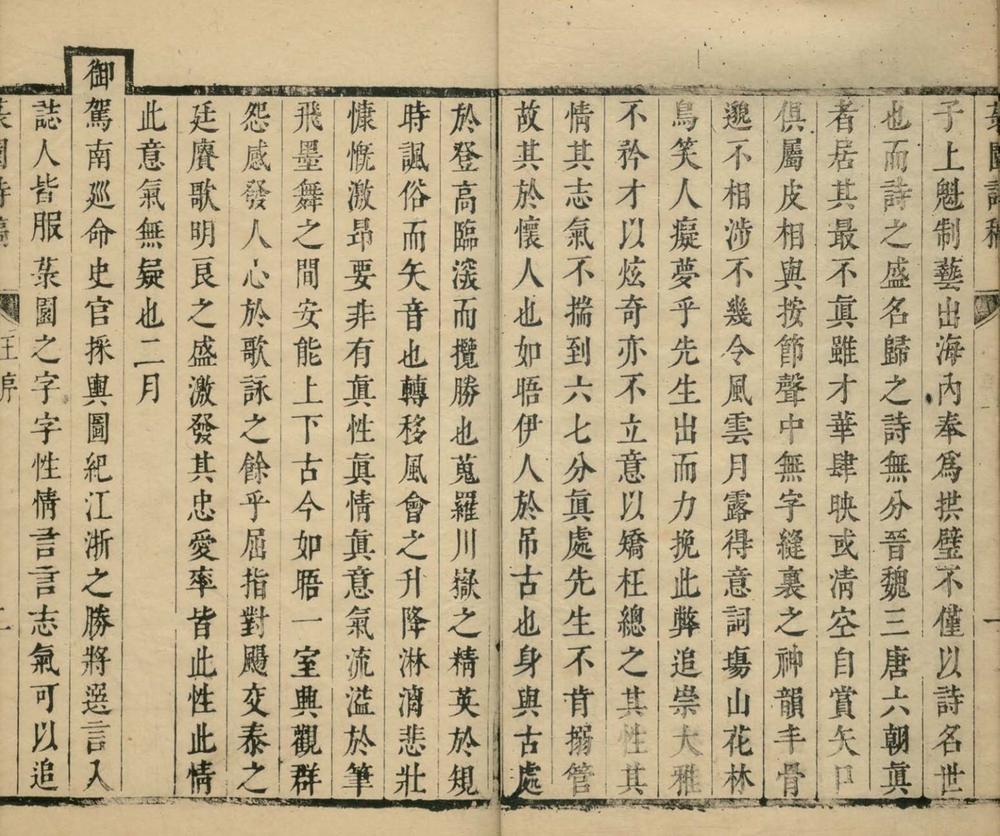 子上魁制藝出海內奉爲拱璧不僅以詩名世
也而詩之盛名歸之詩無分晉魏三唐六朝眞
者居其最不眞雖才華肆映或淸空自賞矢口
俱屬皮相與按節聲中無字縫裏之神韻丰骨
邈不相涉不幾令風雲月露得意詞塲山花林
鳥笑人癡夢乎先生出而力挽此弊追崇大雅
不矜才以炫奇亦不立意以矯枉總之其性其
情其志氣不揣到六七分眞處先生不肯搦管
故其於懷人也如晤伊人於吊古也身與古處
於登高臨深而攬勝也蒐羅川嶽之精英於規
時諷俗而矢音也轉移風會之升降淋漓悲壯
慷慨激昻要非有眞性眞情眞意氣流溢於筆
飛墨舞之間安能上下古今如晤一室興觀群
怨感發人心於歌詠之餘乎屈指對颺交泰之
廷賡歌明良之盛激發其忠愛率皆此性此情
此意氣無疑也二月
御駕南巡命史官採輿圖紀江浙之勝將選言入
誌人皆服菉園之字字性情言言志氣可以追
菉園詩稿
王序
二